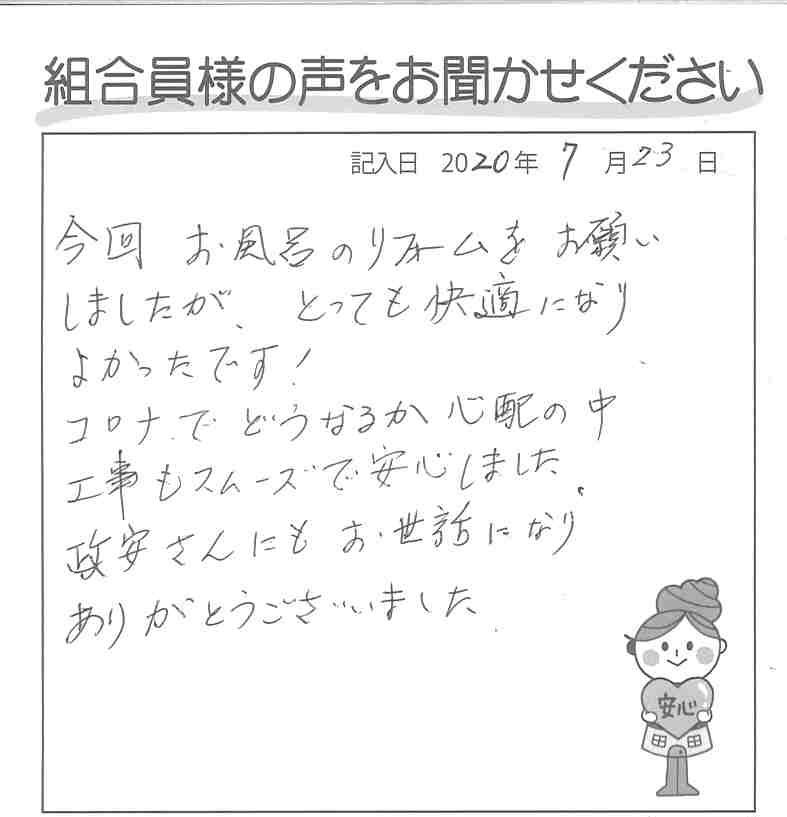 組合員様の声をお聞かせください
記入日 2020年 7月23日
今回 お風呂のリフォームを お願い
しましたが、とっても快適になり
よかったです!
コロナで どうなるか 心配の中
工事もスムーズで安心しました。
政安さんにも お世話になり
ありがとうございました
安心